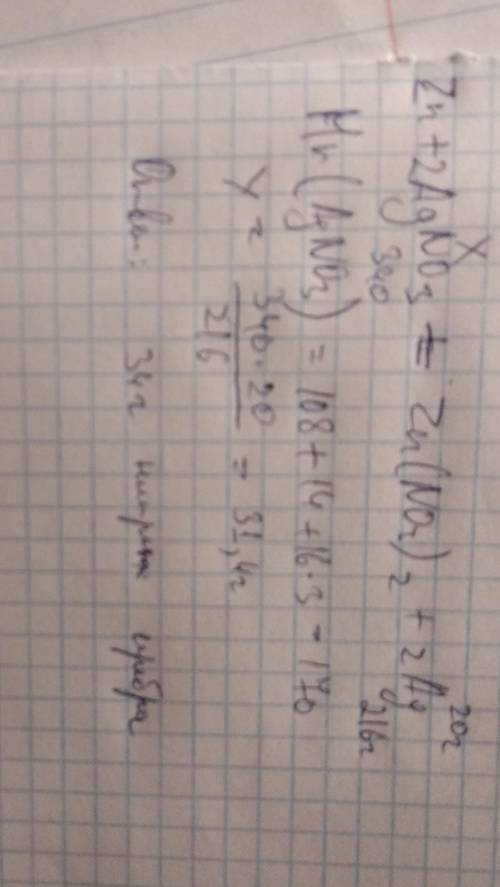 X 20г
Zn + 2AgNO3 = Zn(NO3)2 + 2Ag
340 216г
Mr(AgNO3) = 108 + 14 + 16·3 = 170
X = 340·20 / 216 = 31,4г
Ответ: 34г нитрата серебра